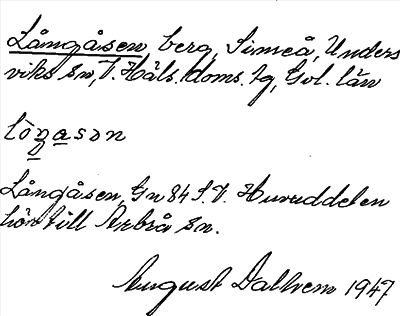 Långåsen, berg, Simeå, Unders
viks sn, V. Häls. doms. sg, Gvl. län
Långåsen, Gn 84 S.V. Huvuddelen
hör till Arbrå sn.
August Dalhem 1947